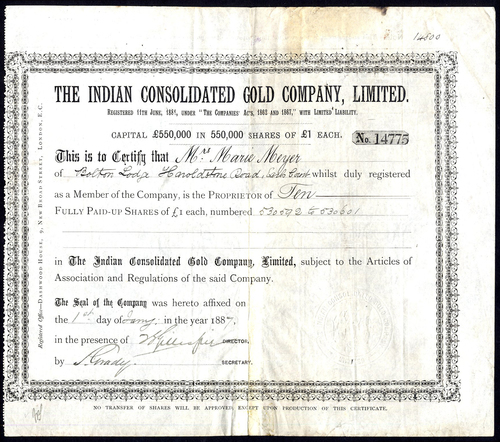 14800
THE INDIAN CONSOLIDATED GOLD COMPANY, LIMITED.
REGISTERED 11TH JUNE, 1881, UNDER "THE COMPANIES' ACTS, 1862 AND 1867," WITH LIMITED LIABILITY.
CAPITAL £550,000 IN 550,000 SHARES OF £1 EACH.
No. 14775
This is to Certify that Mrs Marie Meyer
of Bolton Lodge Haroldstone Road, whilst duly registered
as a Member of the Company, is the PROPRIETOR of Ten
FULLY PAID-UP SHARES of £1 each, numbered 530592 to 530601
in The Indian Consolidated Gold Company, Limited, subject to the Articles of
Association and Regulations of the said Company.
The Seal of the Company was hereto affixed on
the 1st day of Jany. in the year 1887.
in the presence of DIRECTOR,
by J. Grady. SECRETARY.
NO TRANSFER OF SHARES WILL BE APPROVED, EXCEPT UPON PRODUCTION OF THIS CERTIFICATE.
Registered Office—DASHWOOD HOUSE, 9, NEW BROAD STREET, LONDON, E.C.